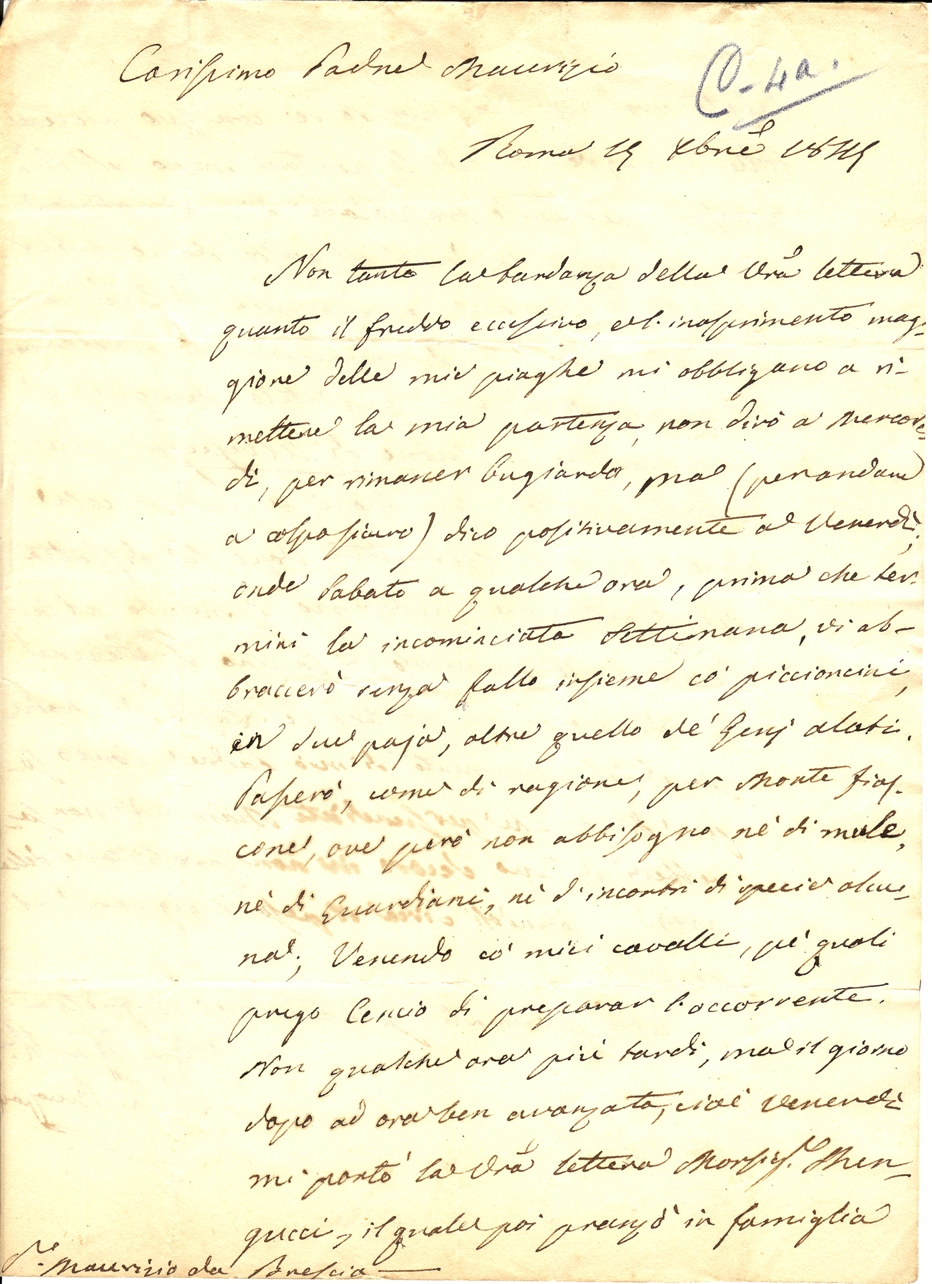 Carissimo Padre Maurizio
C. 4a.
Roma 15 Xbre 1845
Non tanto la tardanza della Vra lettera
quanto il freddo eccessivo, e l'inasprimento mag-
giore delle mie piaghe mi obbligano a ri-
mettere la mia partenza, non dirò a Mercor-
dì, per rimaner bugiardo, ma (per andare
a colpo sicuro) dico positivamente a Venerdì;
onde Sabato a qualche ora, prima che ter-
mini la incominciata Settimana, vi ab-
braccerò senza fallo insieme co' piccioncini,
in due paja, oltre quello de' Genj alati.
Passerò, come di ragione, per Monte fias-
cone, ove però non abbisogno nè di mule,
nè di Guardiani, nè d'incontri di specie alcu-
na; Venendo co' miei cavalli, pe' quali
prego Cencio di preparar l'occorrente.
Non qualche ora più tardi, ma il giorno
dopo ad ora ben avanzata, cioè Venerdì
mi portò la Vra lettera Monsig.r Men-
gucci, il quale poi pranzò in famiglia
P.e Maurizio da Brescia